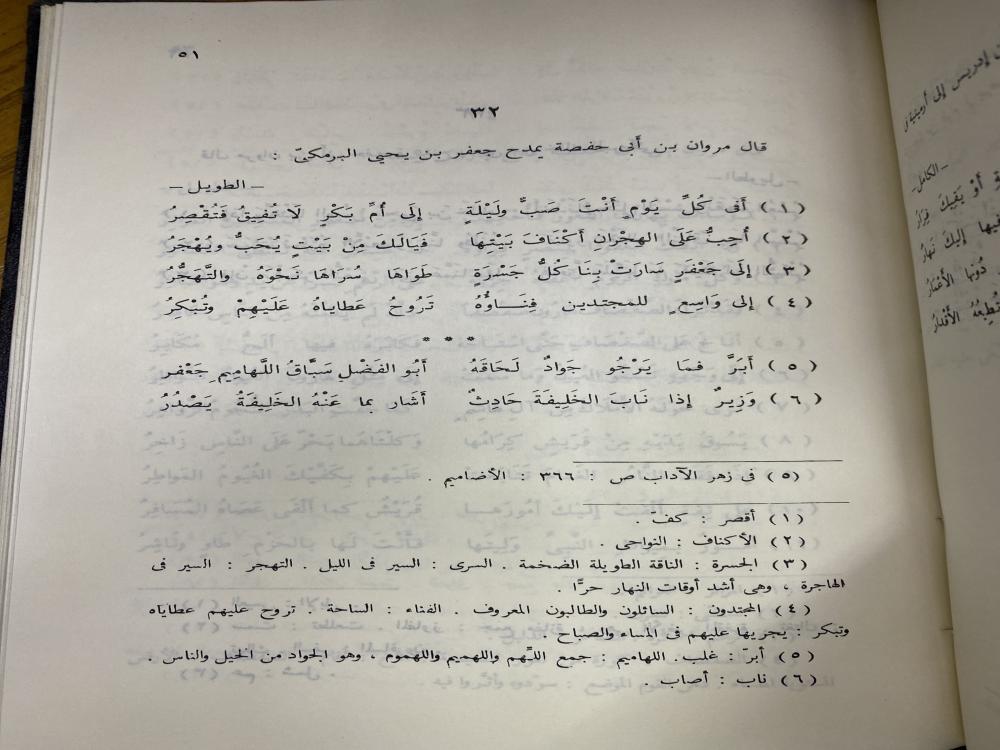 ٥١
٣٢
قال مروان بن أبى حفصة يمدح جعفر بن يحيى البرمكىّ :
– الطويل –
( ١ ) أَفى كُلِّ يَوْمٍ أَنْتَ صَبٌّ ولَيْلَةٍ إلَى أُمِّ بَكْرٍ لَا تُفِيقُ فَتُقْصِرُ
( ٢ ) أُحِبُّ عَلَى الهِجْرانِ أَكْنَافَ بَيْتِهَا فَيَالَكَ مِنْ بَيْتٍ يُحَبُّ ويُهْجَرُ
( ٣ ) إلَى جَعْفَرٍ سَارَتْ بِنَا كُلُّ جَسْرَةٍ طَوَاهَا سُرَاهَا نَحْوَهُ والتَّهَجُّرُ
( ٤ ) إلى وَاسِعٍ للمجتدين فِنَاؤُهُ تَرُوحُ عَطاياهُ عَلَيْهِمْ وتُبْكِرُ
* * *
( ٥ ) أَبَرَّ فَما يَرْجُو جَوادٌ لَحَاقَهُ أَبُو الفَضْلِ سَبَّاقُ اللَّهامِيمِ جَعْفَر
( ٦ ) وَزِيرٌ إذا نَابَ الخَلِيفَةَ حَادِثٌ أَشَار بما عَنْهُ الخَلِيفَةُ يَصْدُرُ
( ٥ ) فى زهر الآداب ص : ٣٦٦ : الأضاميم .
( ١ ) أقصر : كفّ .
( ٢ ) الأكناف : النواحى .
( ٣ ) الجسرة : الناقة الطويلة الضخمة . السرى : السير فى الليل . التهجر : السير فى
الهاجرة ، وهى أشد أوقات النهار حرًّا .
( ٤ ) المجتدون : السائلون والطالبون المعروف . الفناء : الساحة . تروح عليهم عطاياه
وتبكر : يجريها عليهم فى المساء والصباح .
( ٥ ) أبرّ : غلب . اللهاميم : جمع اللِّهم واللهميم واللهموم ، وهو الجواد من الخيل والناس .
( ٦ ) ناب : أصاب .
إدريس إلى أرمينية
– الكامل –
أَوْ يَقِيكَ
إليكَ نَهارُ
دُونَها الأَعْمَارُ
الأَقْدَارُ